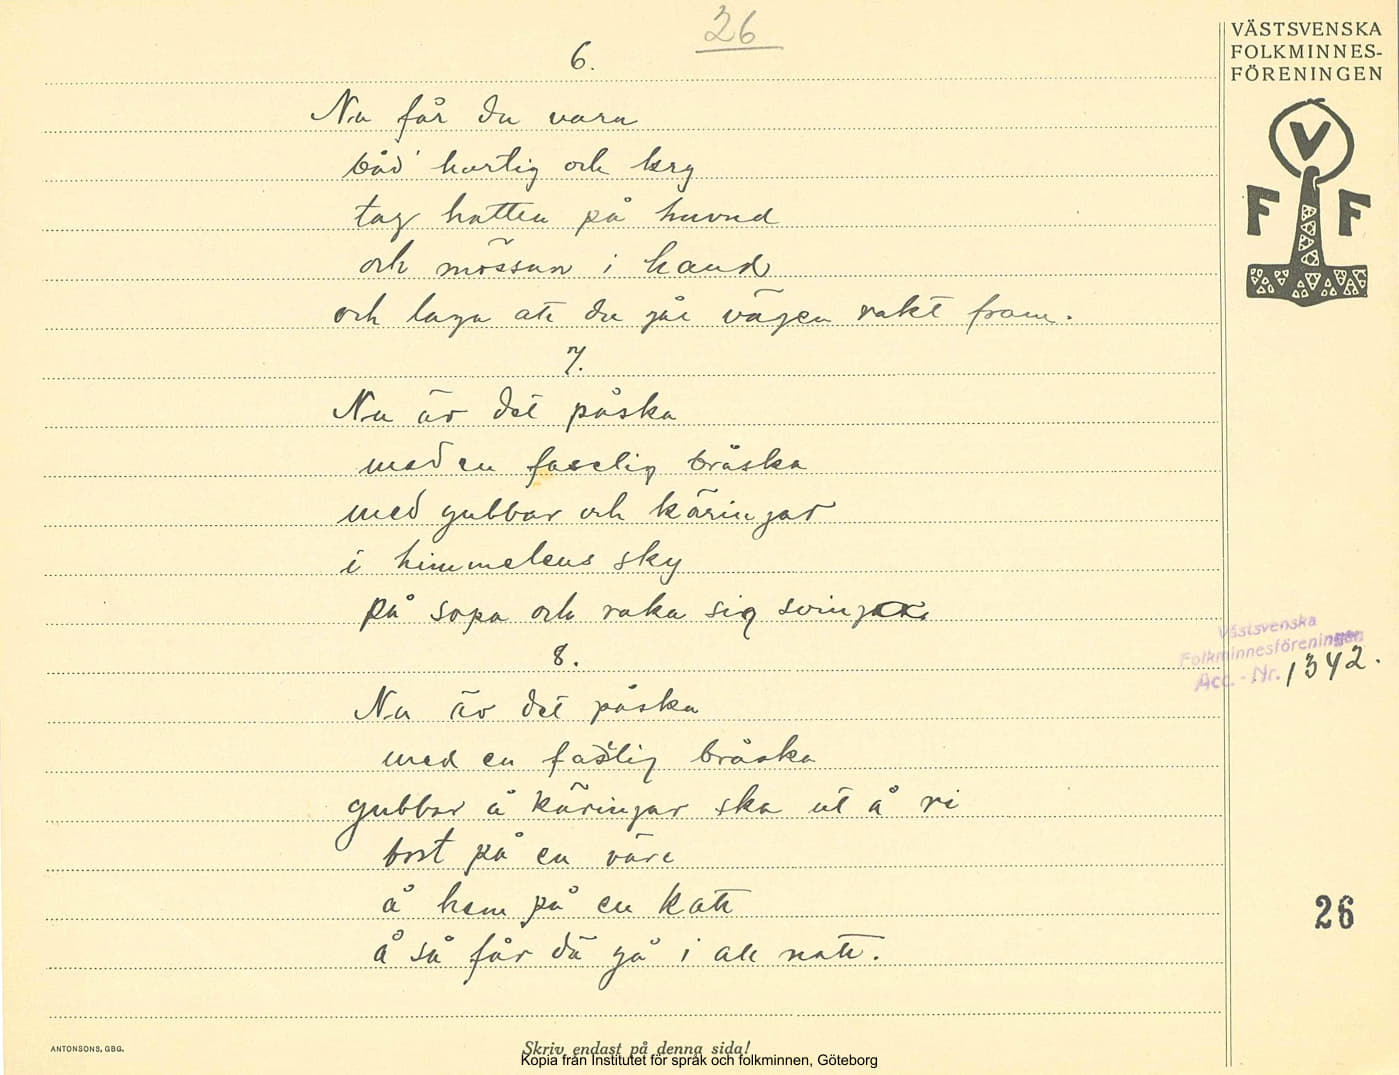 26
VÄSTSVENSKA
FOLKMINNES-
FÖRENINGEN
V
F F
6.
Nu får du vara
båd' hurtig och kry
tag hatten på huvud
och mössan i hand
och laga att du går vägen rakt fram.
7.
Nu är det påska
med en faselig bråska
med gubbar och käringar
i himmelens sky
på sopa och raka sig svinga
8.
Nu är det påska
med en faslig bråska
gubbar å käringar ska ut å ri
bort på en
å hem på en katt
å så får dä gå i all natt.
Västsvenska
Folkminnesföreningen
Acc. - Nr. 1342.
26
ANTONSONS, GBG.
Skriv endast på denna sida!
Kopia från Institutet för språk och folkminnen, Göteborg